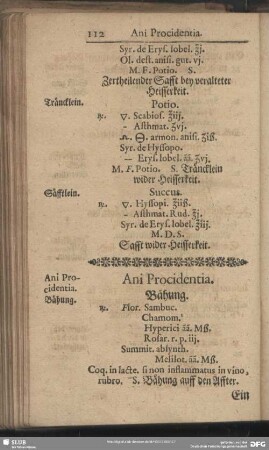 112 Ani Procidentia.
Syr. de Erys. lobel. ℥j.
Ol. dest. anisi. gut. vj.
M. F. Potio. S.
Zertheilender Safft bey veralteter
Heisserkeit.
Träncklein. Potio.
℞. ▽. Scabios. ℥iij.
- Asthmat. ʒvj.
armon. anisi. ʒiß.
Syr. de Hyssopo.
— Erys. lobel. āā. ʒvj.
M. F. Potio. S. Träncklein
wider Heisserkeit.
Säfftlein. Succus.
℞. ▽. Hyssopi. ℥iiß.
- Asthmat. Rud. ℥j.
Syr. de Erys. lobel. ℥iij.
M. D. S.
Safft wider Heisserkeit.
Ani Procidentia.
Ani Pro-
cidentia.
Bähung.
Bähung.
℞. Flor. Sambuc.
Chamom.
Hyperici āā. Mß.
Rosar. r. p. iij.
Summit. absynth.
Melilot. āā. Mß.
Coq. in lacte. si non inflammatus in vino,
rubro. S. Bähung auff den Affter.
Ein
SLUB
DFG